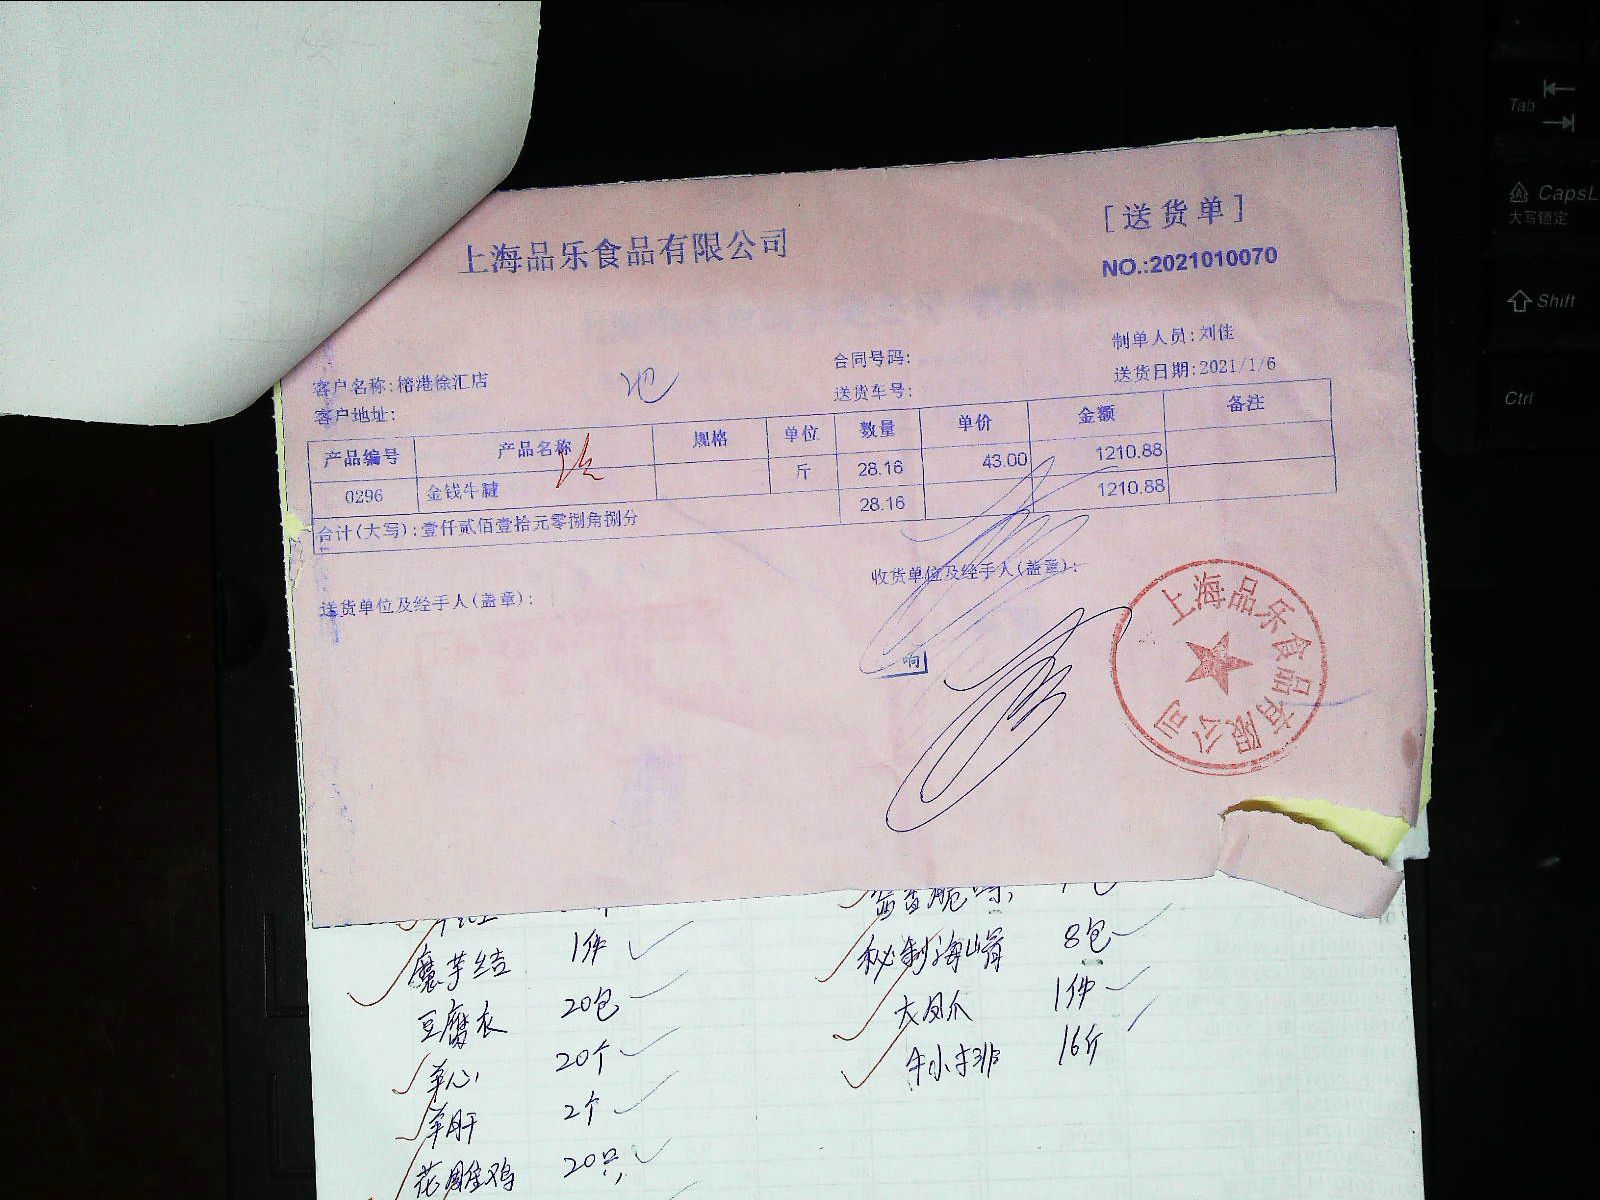 [送货单]
上海品乐食品有限公司
NO.:2021010070
制单人员:刘佳
合同号码:
客户名称:榕港徐汇店
送货日期:2021/1/6
送货车号:
客户地址:
产品编号 产品名称 规格 单位 数量 单价 金额 备注
0296 金钱牛腱 斤 28.16 43.00 1210.88
合计(大写):壹仟贰佰壹拾元零捌角捌分 28.16 1210.88
送货单位及经手人(盖章):
收货单位及经手人(盖章):
上海品乐食品有限公司
魔芋结 1件
豆腐衣 20包
羊心 20个
羊肝 2个
花雕鸡 20只
8包
大凤爪 1件
牛小排 16斤
Tab
CapsL
大写锁定
Shift
Ctrl